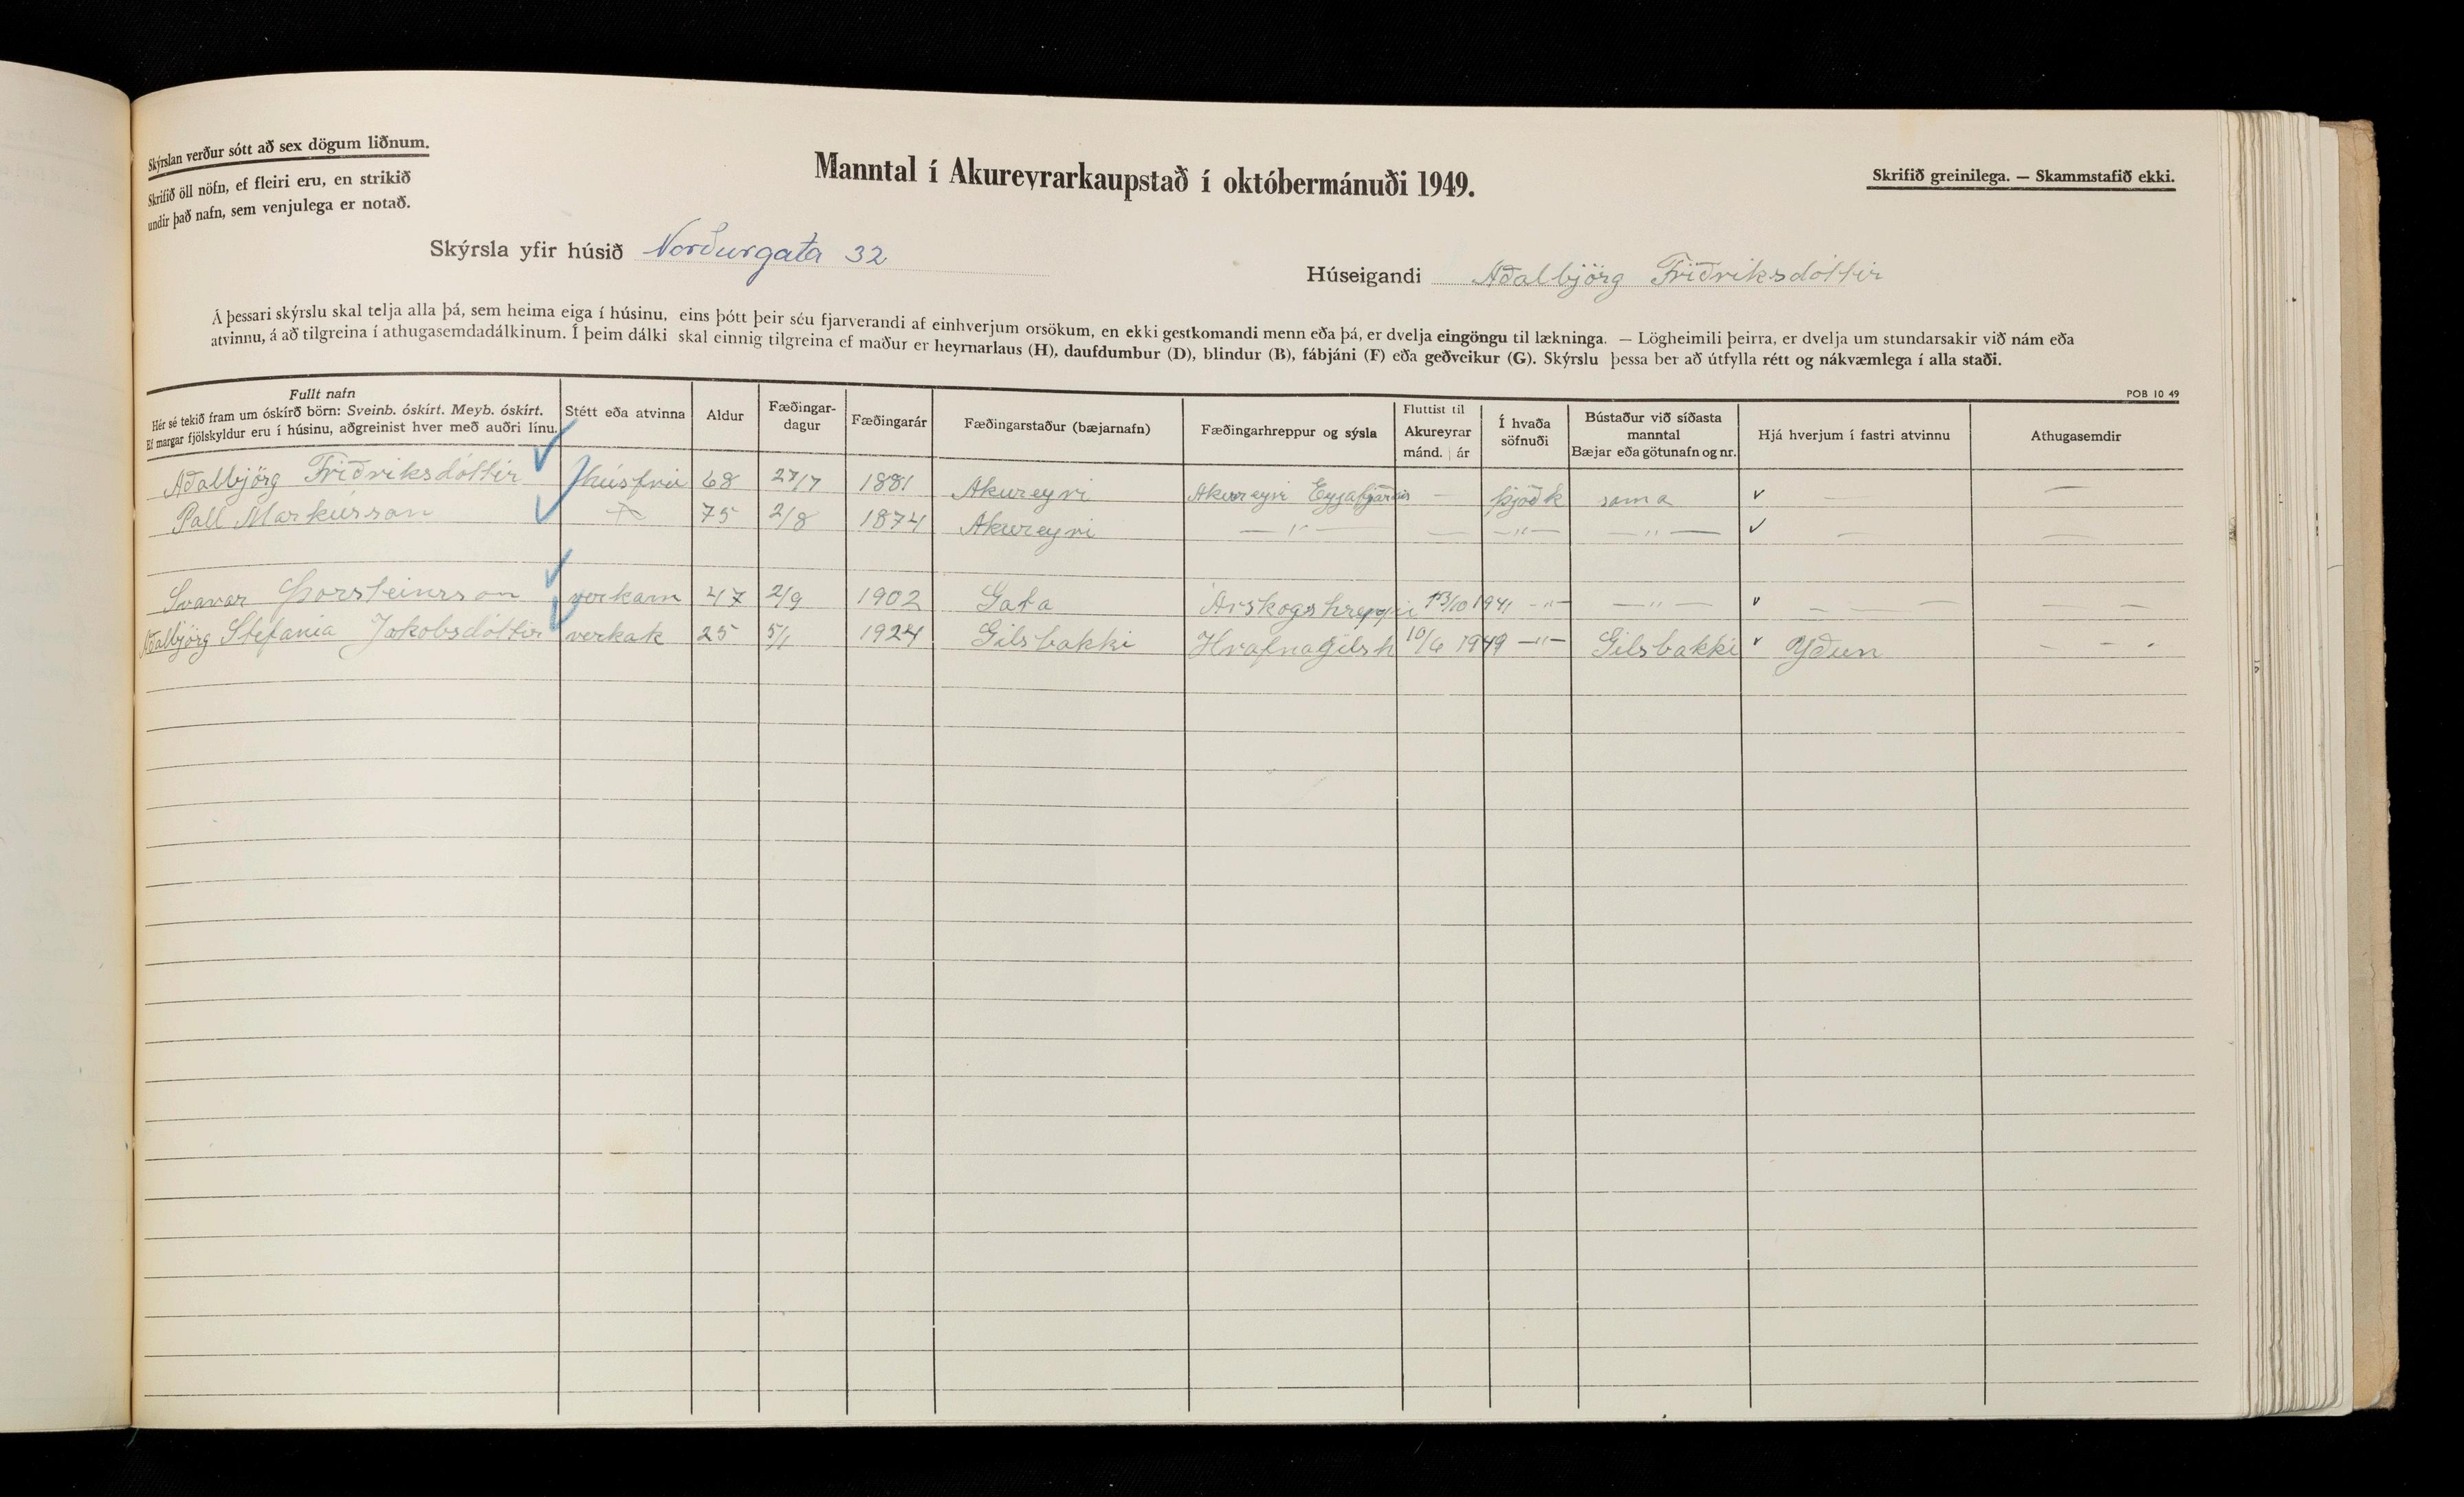 Skýrslan verður sótt að sex dögum liðnum.
Skrifið öll nöfn, ef fleiri eru, en strikið
undir það nafn, sem venjulega er notað.
Manntal í Akureyrarkaupstað í októbermánuði 1949.
Skrifið greinilega. — Skammstafið ekki.
Skýrsla yfir húsið Norðurgata 32
Húseigandi Aðalbjörg Friðriksdóttir
Á þessari skýrslu skal telja alla þá, sem heima eiga í húsinu, eins þótt þeir séu fjarverandi af einhverjum orsökum, en ekki gestkomandi menn eða þá, er dvelja eingöngu til lækninga. — Lögheimili þeirra, er dvelja um stundarsakir við nám eða
atvinnu, á að tilgreina í athugasemdadálkinum. Í þeim dálki skal einnig tilgreina ef maður er heyrnarlaus (H), daufdumbur (D), blindur (B), fábjáni (F) eða geðveikur (G). Skýrslu þessa ber að útfylla rétt og nákvæmlega í alla staði.
POB 10 49
Fullt nafn
Hér sé tekið fram um óskírð börn: Sveinb. óskírt. Meyb. óskírt.
Ef margar fjölskyldur eru í húsinu, aðgreinist hver með auðri línu.
Stétt eða atvinna
Aldur
Fæðingar-
dagur
Fæðingarár
Fæðingarstaður (bæjarnafn)
Fæðingarhreppur og sýsla
Fluttist til
Akureyrar
mánd. ár
Í hvaða
söfnuði
Bústaður við síðasta
manntal
Bæjar eða götunafn og nr.
Hjá hverjum í fastri atvinnu
Athugasemdir
Aðalbjörg Friðriksdóttir húsfrú 68 27/7 1881 Akureyri Akureyri — þjóðk sama ✓ — —
Páll Markússon 75 2/8 1874 Akureyri —"— — —"— —"— ✓ — —
Svavar Þorsteinsson verkam 47 2/9 1902 Gata Árskogshreppi 13/10 1941 —"— —"— ✓ — — — —
Aðalbjörg Stefanía Jakobsdóttir verkak 25 5/1 1924 Gilsbakki Hrafnagilsh 10/6 1949 —"— Gilsbakki ✓ Yðun — — -